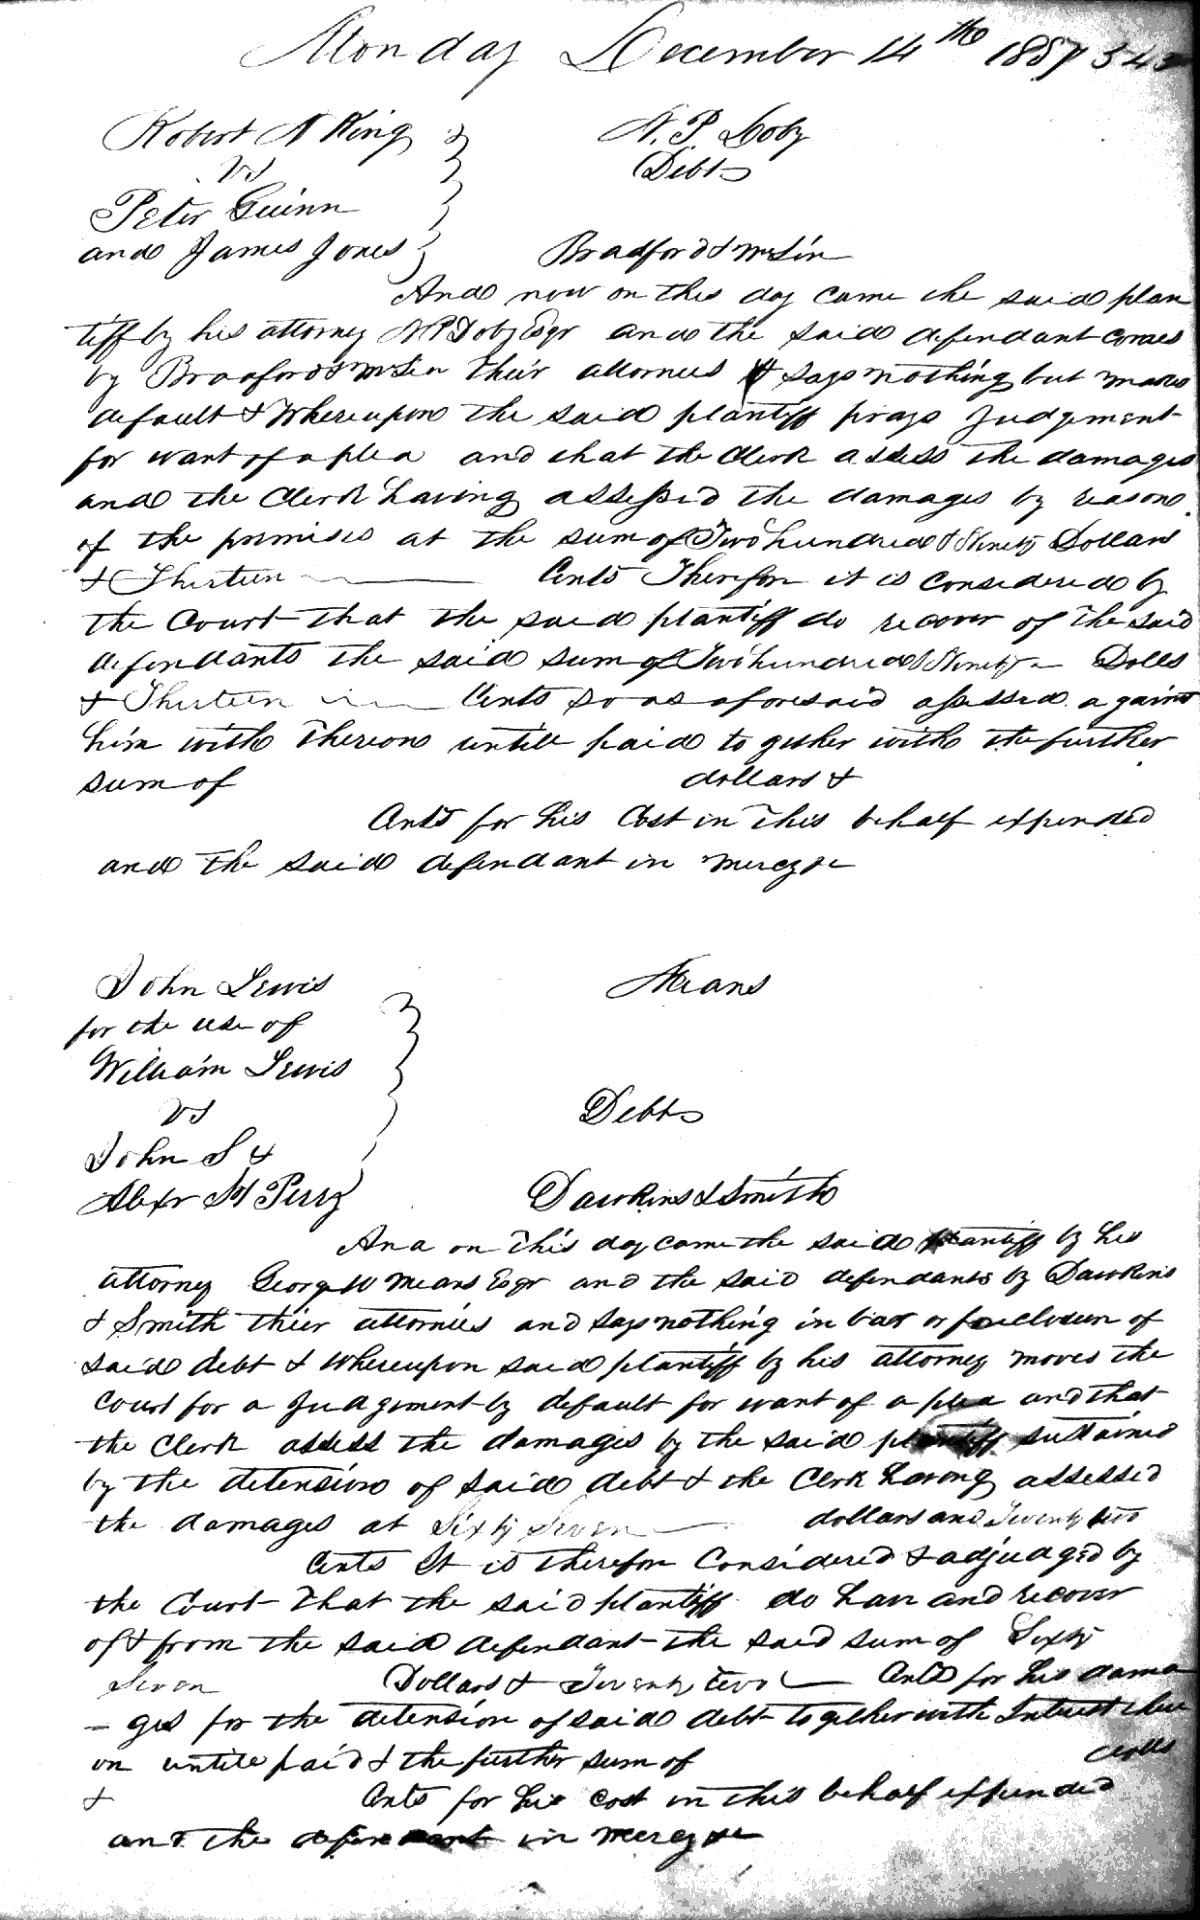 Monday December 14th 1857 342
Robert N King N. P. Doby
vs Debts
Peter Guinn
and James Jones Bradford & McLin
And now on this day came the said plan
tiff by his attorney N P Doby Esqr and the said defendant comes
by Bradford & McLin their attornies & says nothing but makes
default & Whereupon the said plantiff prays Judgement
for want of a plea and that the Clerk assess the damages
and the Clerk having assessed the damages by reason
of the premises at the sum of Two hundred & Ninety Dollars
& Thirteen Cents Therefor it is considered by
the Court that the said plantiff do recover of the said
defendants the said sum of Two hundred & Ninety Dolls
& Thirteen Cents so as aforesaid assessed against
him with Thereon untill paid to gether with the further
sum of dollars &
Cents for his Cost in This behalf expended
and the said defendant in mercy &c
John Lewis Means
for the use of
William Lewis
vs Debts
John S &
Alexr M Perry Dawkins & Smith
And on This day came the said plantiff by his
attorney George W Means Esqr and the said defendants by Dawkins
& Smith thier attornies and says nothing in bar or of
said debt & Whereupon said plantiff by his attorney moves the
Court for a Judgement by default for want of a plea and that
the Clerk assess the damages by the said plantiff sustained
by the detension of said debt & the Clerk having assessed
the damages at Sixty Seven dollars and Twenty two
Cents It is therefor Considered & adjudged by
the Court That the said plantiff do have and recover
of & from the said defendant the said sum of Sixty
Seven Dollars & Twenty two Cents for his dama
- ges for the detension of said debt together with Interest there
on untill paid & the further sum of dolls
& Cents for his cost in this behalf expended
and the defendant in mercy &c